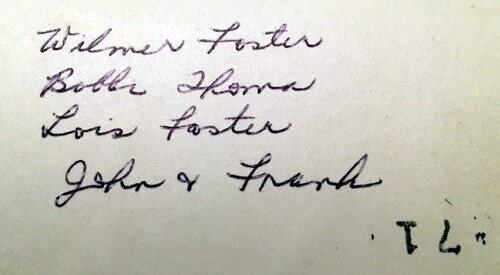 Wilmer Foster
Bobbe Thoma
Lois Foster
John & Frank